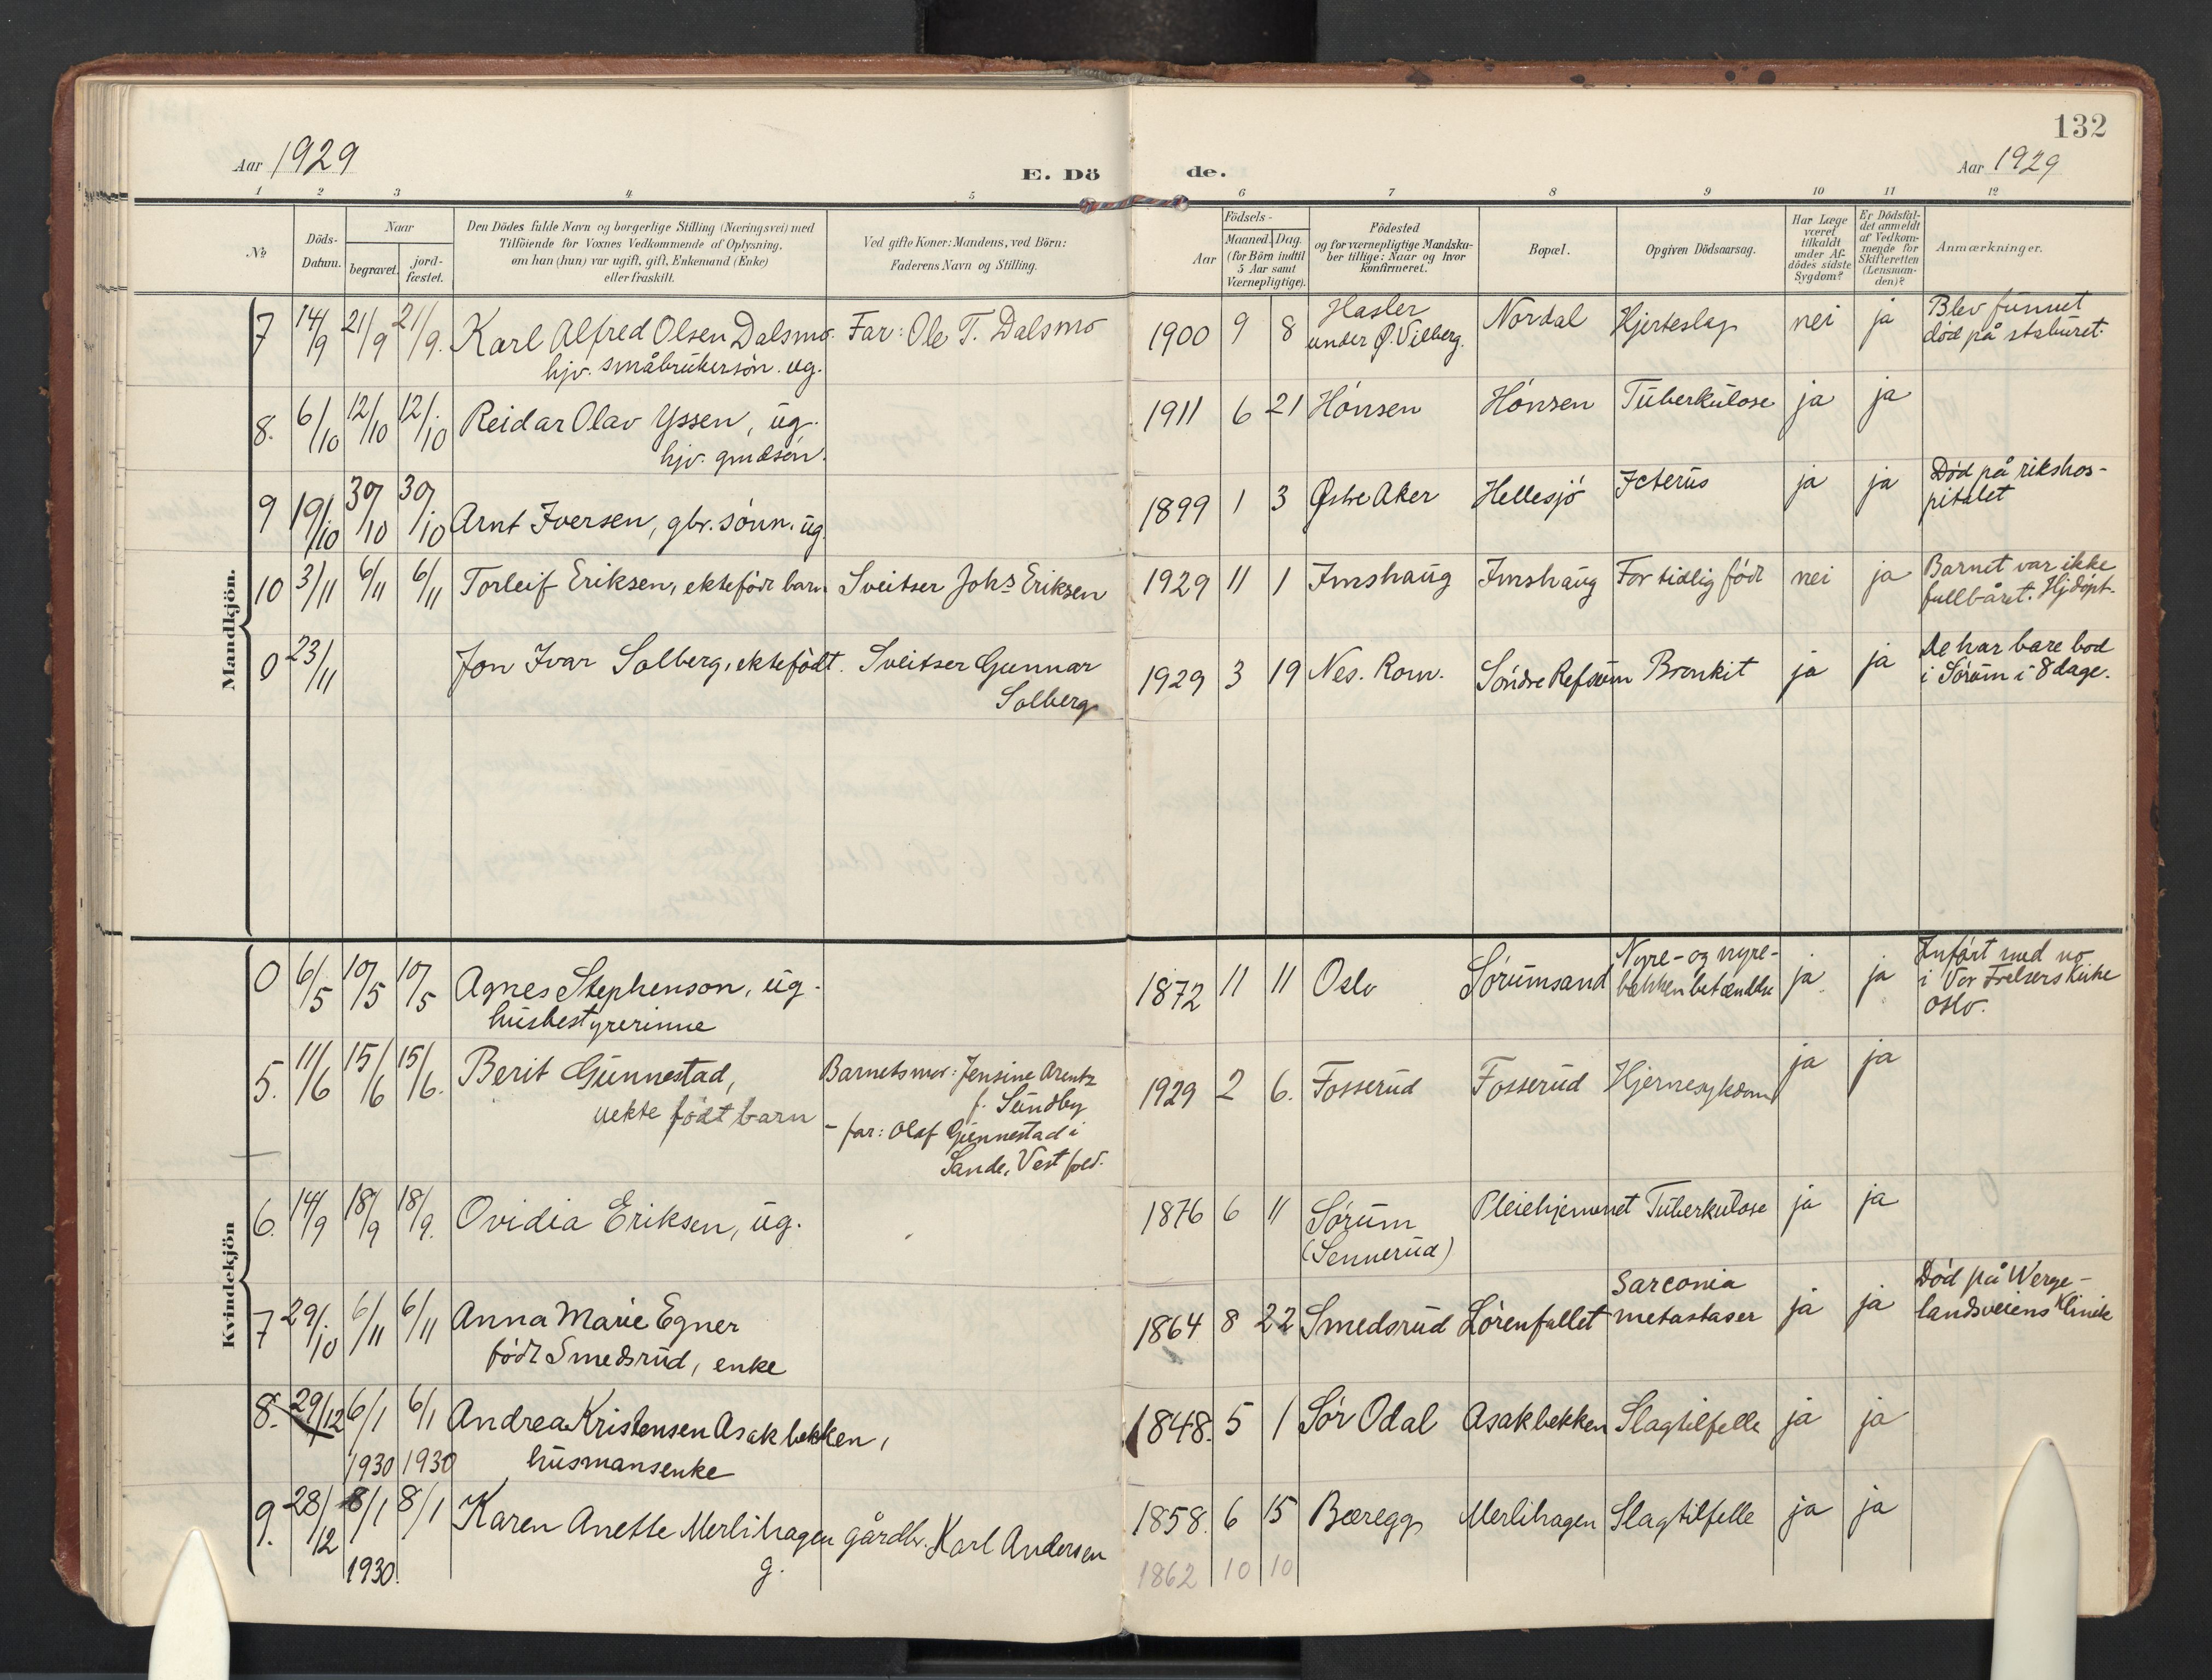 132
Aar 1929
E. Dö
de.
Aar 1929
1 2 3 4 5 6 7 8 9 10 11 12
No
Döds-
Datum.
Naar
begravet.
jord-
fæstet.
Den Dödes fulde Navn og borgerlige Stilling (Næringsvei) med
Tilföiende for Voxnes Vedkommende af Oplysning,
om han (hun) var ugift, gift, Enkemand (Enke)
eller fraskilt.
Ved gifte Koner: Mandens, ved Börn:
Faderens Navn og Stilling.
Födsels-
Aar
Maaned. Dag.
(for Börn indtil
5 Aar samt
Værnepligtige).
Födested
og for værnepligtige Mandska-
ber tillige: Naar og hvor
konfirmeret.
Bopæl.
Opgiven Dödsaarsag.
Har Læge
været
tilkaldt
under Af-
dödes sidste
Sygdom?
Er Dödsfal-
det anmeldt
af Vedkom-
mende for
Skifteretten
(Lensman-
den)?
Anmærkninger.
Mandkjön.
7 14/9 21/9 21/9. Karl Alfred Olsen Dalsmo. Far: Ole T. Dalsmo 1900 9 8 Hasler Nordal Hjerteslag nei ja Blev funnet
hjv. småbrukersön. ug. under Ø. Vilberg. död på staburet.
8. 6/10 12/10 12/10 Reidar Olav Yssen, ug. 1911 6 21 Hönsen Hönsen Tuberkulose ja ja
hjv. gmdsön.
9 19/10 30/10 30/10 Arnt Iversen, gbr. sönn. ug. 1899 1 3 Østre Aker Hellesjö Icterus ja ja Död på rikshos-
pitalet
10 3/11 6/11 6/11 Torleif Eriksen, ektefödt barn Sveitser Johs Eriksen 1929 11 1 Imshaug Imshaug For tidlig född nei ja Barnet var ikke
fullbåret. Hjdöpt.
0 23/11 Jon Ivar Solberg, ektefödt. Sveitser Gunnar 1929 3 19 Nes. Rom. Söndre Refsum Bronkit ja ja De har bare bod
Solberg i Sörum i 8 dage.
Kvindekjön
0 6/5 10/5 10/5 Agnes Stephenson, ug. 1872 11 11 Oslo Sörumsand Nyre- og nyre- ja ja Infört med no
husbestyrerinne bekkenbetændelse i Vor Frelsers Kirke
Oslo.
5. 11/6 15/6 15/6. Berit Gunnestad, Barnets mor: Jensine Arentz 1929 2 6. Fosserud Fosserud Hjernesykdom ja ja
f. Sundby
uekte födt barn - far: Olaf Gunnestad i
Sande, Vestfold.
6. 14/9 18/9 18/9. Ovidia Eriksen, ug. 1876 6 11 Sörum Pleiehjemmet Tuberkulose ja ja
(Sennerud)
7 29/10 6/11 6/11 Anna Marie Egner 1864 8 22 Smedsrud Lörenfallet Sarcomia ja ja Död på Werge-
född Smedsrud, enke metastaser landsveiens Klinik
8. 29/12 6/1 6/1 Andrea Kristensen Asakbekken, 1848. 5 1 Sör Odal Asakbekken Slagtilfelle ja ja
1930 1930 husmansenke
9. 28/12 8/1 8/1 Karen Anette Merlihagen gårdbr. Karl Andersen 1858. 6 15 Bæregg Merlihagen Slagtilfelle ja ja
1930. g. 1862 10 10